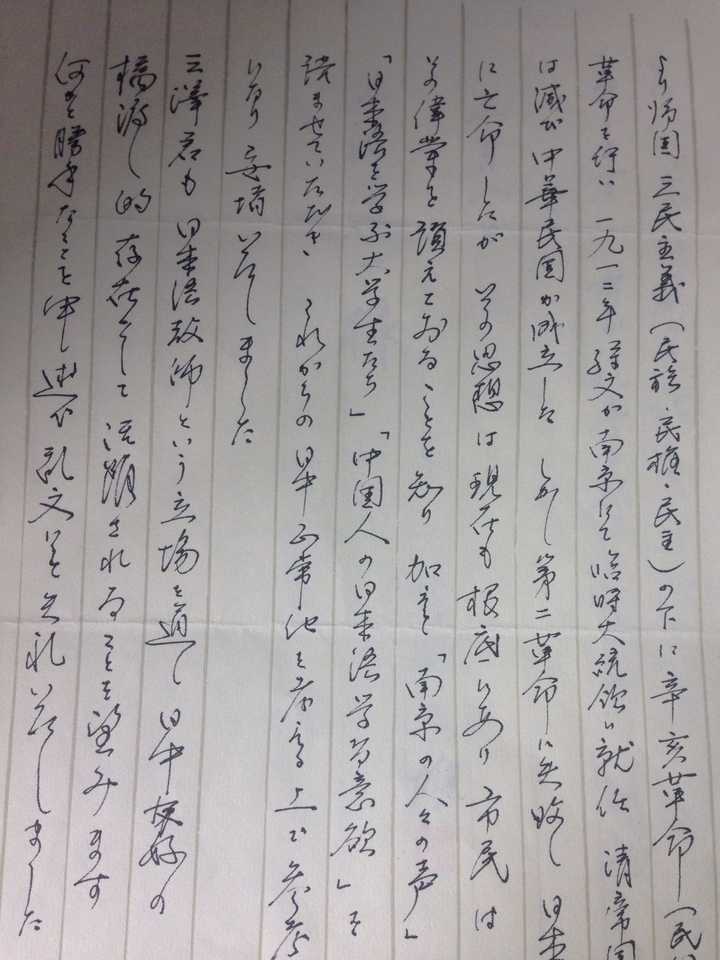 より帰国 三民主義(民族・民権・民主)の下に辛亥革命(民
革命を行い 一九一二年 孫文が南京にて臨時大統領に就任 清帝国
は滅び中華民国が成立した しかし第二革命に失敗し 日本
に亡命したが その思想は現在も根底にあり 市民は
その偉業を讃えておることを知り 加えて「南京の人々の声」
「日本語を学ぶ大学生たち」「中国人の日本語学習意欲」を
読ませていただき これからの日中正常化を 上で参考
になり 致しました
三澤君も日本語教師という立場を通し 日中友好の
橋渡し的存在として活躍されることを望みます
何かと勝手なことを申し述べ 乱文にて失礼いたしました